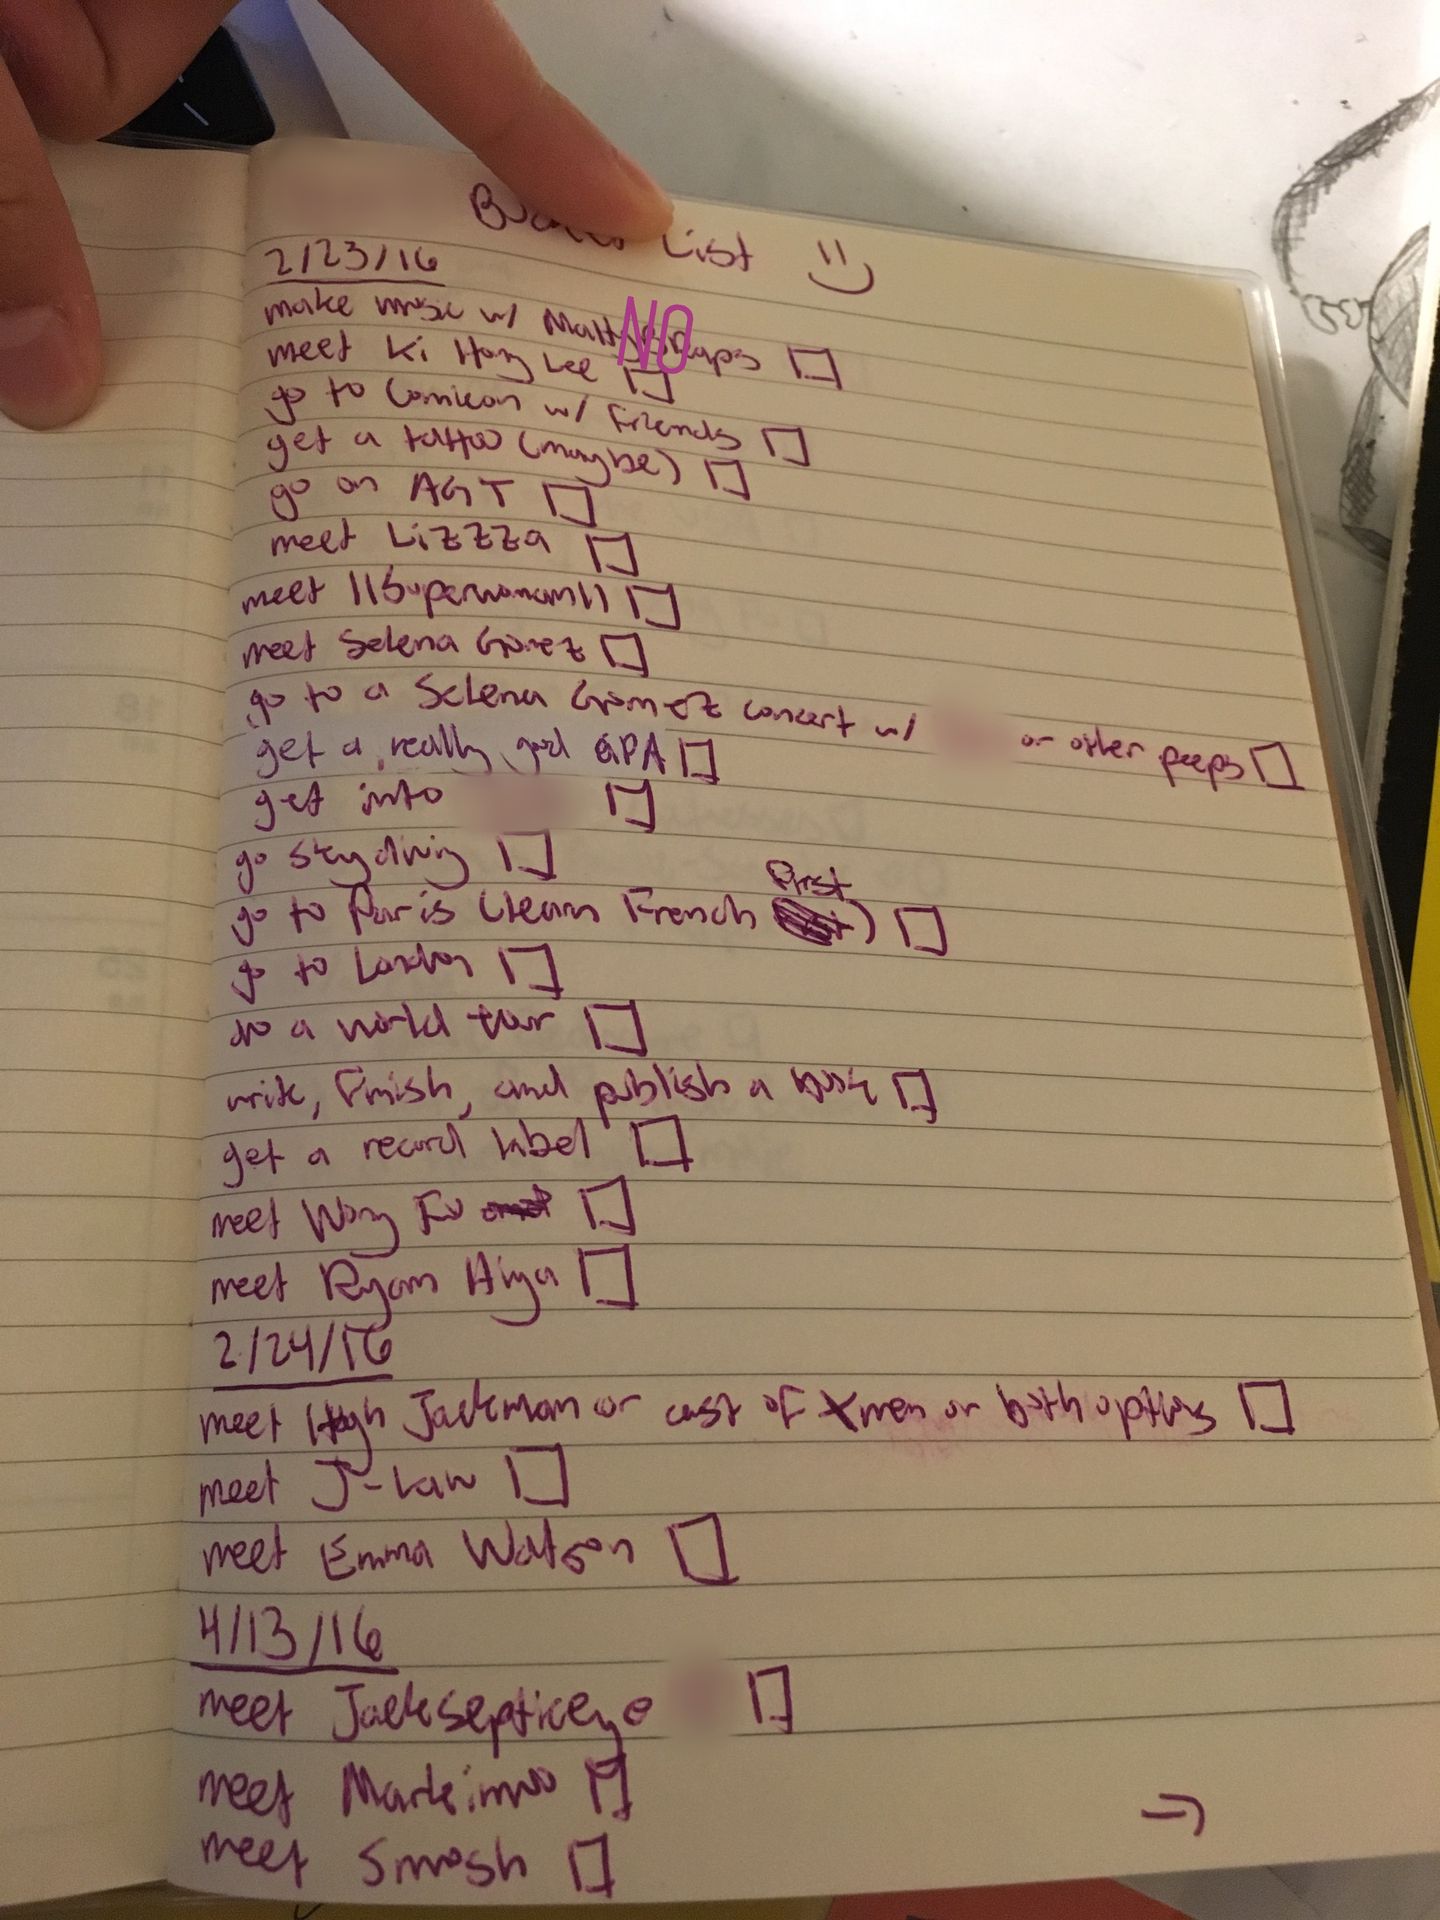 Bucket List
2/23/16
make music w/ MattyBRaps
NO
meet Ki Hong Lee
go to Comicon w/ Friends
get a tattoo (maybe)
go on AGT
meet Lizzza
meet IISuperwomanII
meet Selena Gomez
go to a Selena Gomez concert w/ or other peeps
get a really good GPA
get into
go skydiving
go to Paris (learn French First)
go to London
do a world tour
write, Finish, and publish a book
get a record label
meet Wong Fu
meet Ryan Higa
2/24/16
meet Hugh Jackman or cast of Xmen or both options
meet J-Law
meet Emma Watson
4/13/16
meet Jacksepticeye
meet
meet Smosh